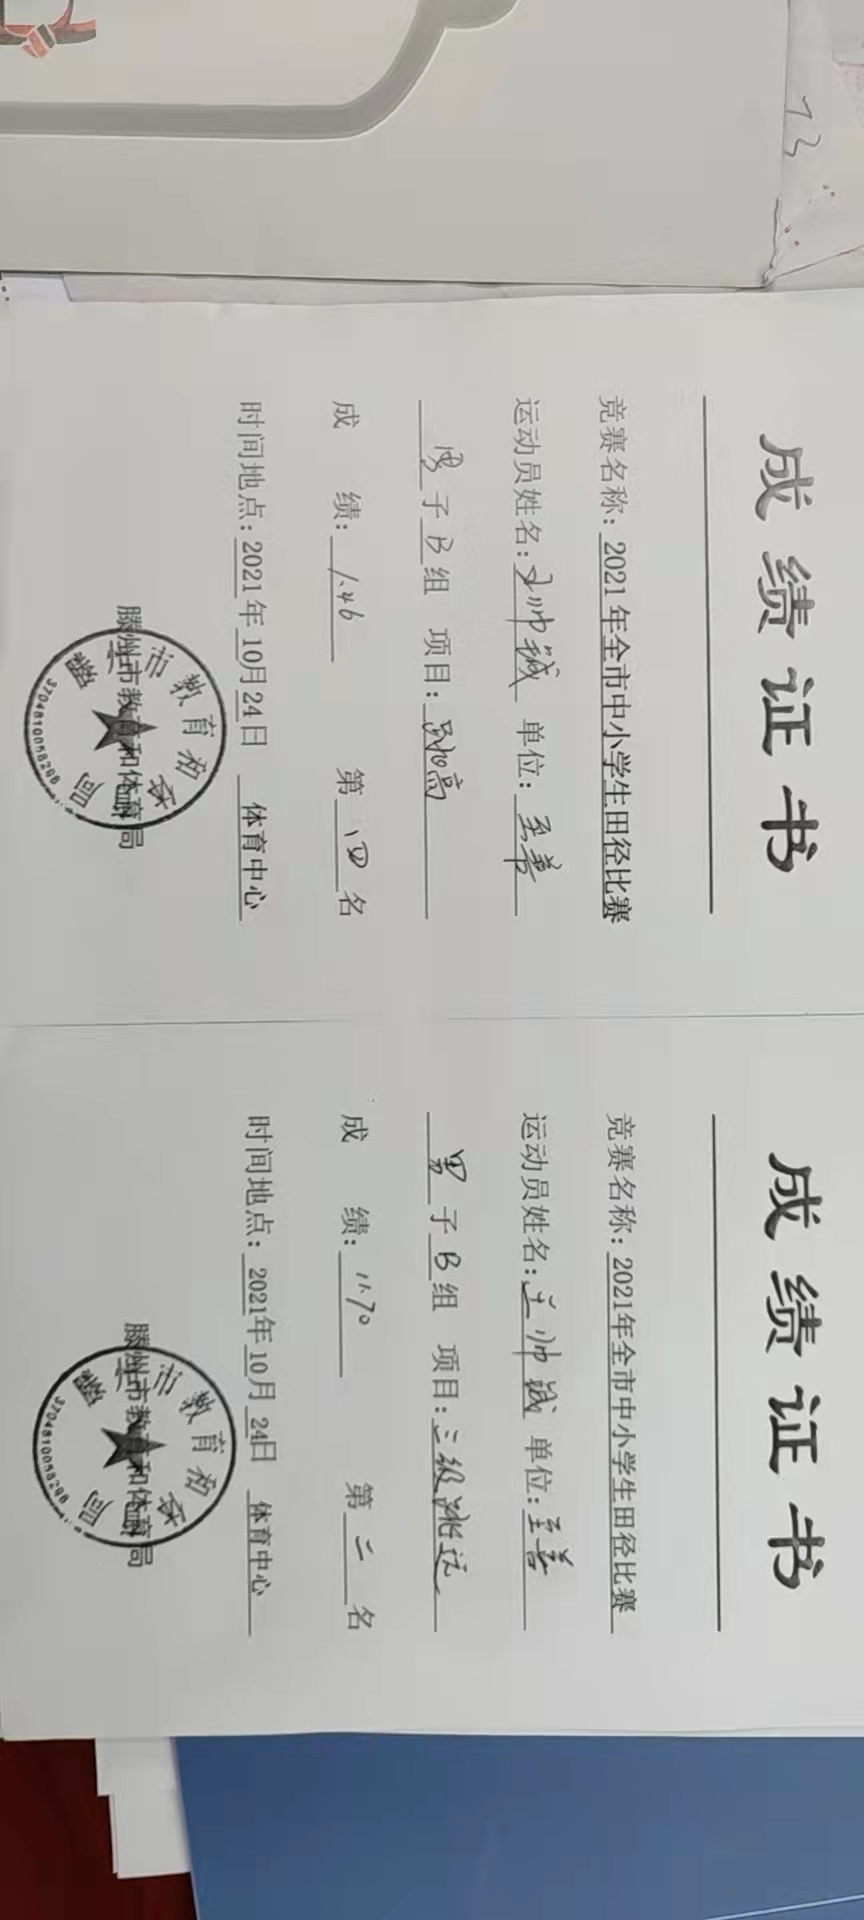 73
成绩证书
竞赛名称：2021年全市中小学生田径比赛
运动员姓名：王帅诚 单位：至善
男子B组 项目：跳高
成 绩：1.46 第四名
时间地点：2021年10月24日 体育中心
滕州市教育和体育局
3704810058298
成绩证书
竞赛名称：2021年全市中小学生田径比赛
运动员姓名：王帅诚 单位：至善
男子B组 项目：三级跳远
成 绩：11.70 第二名
时间地点：2021年10月24日 体育中心
滕州市教育和体育局
3704810058298